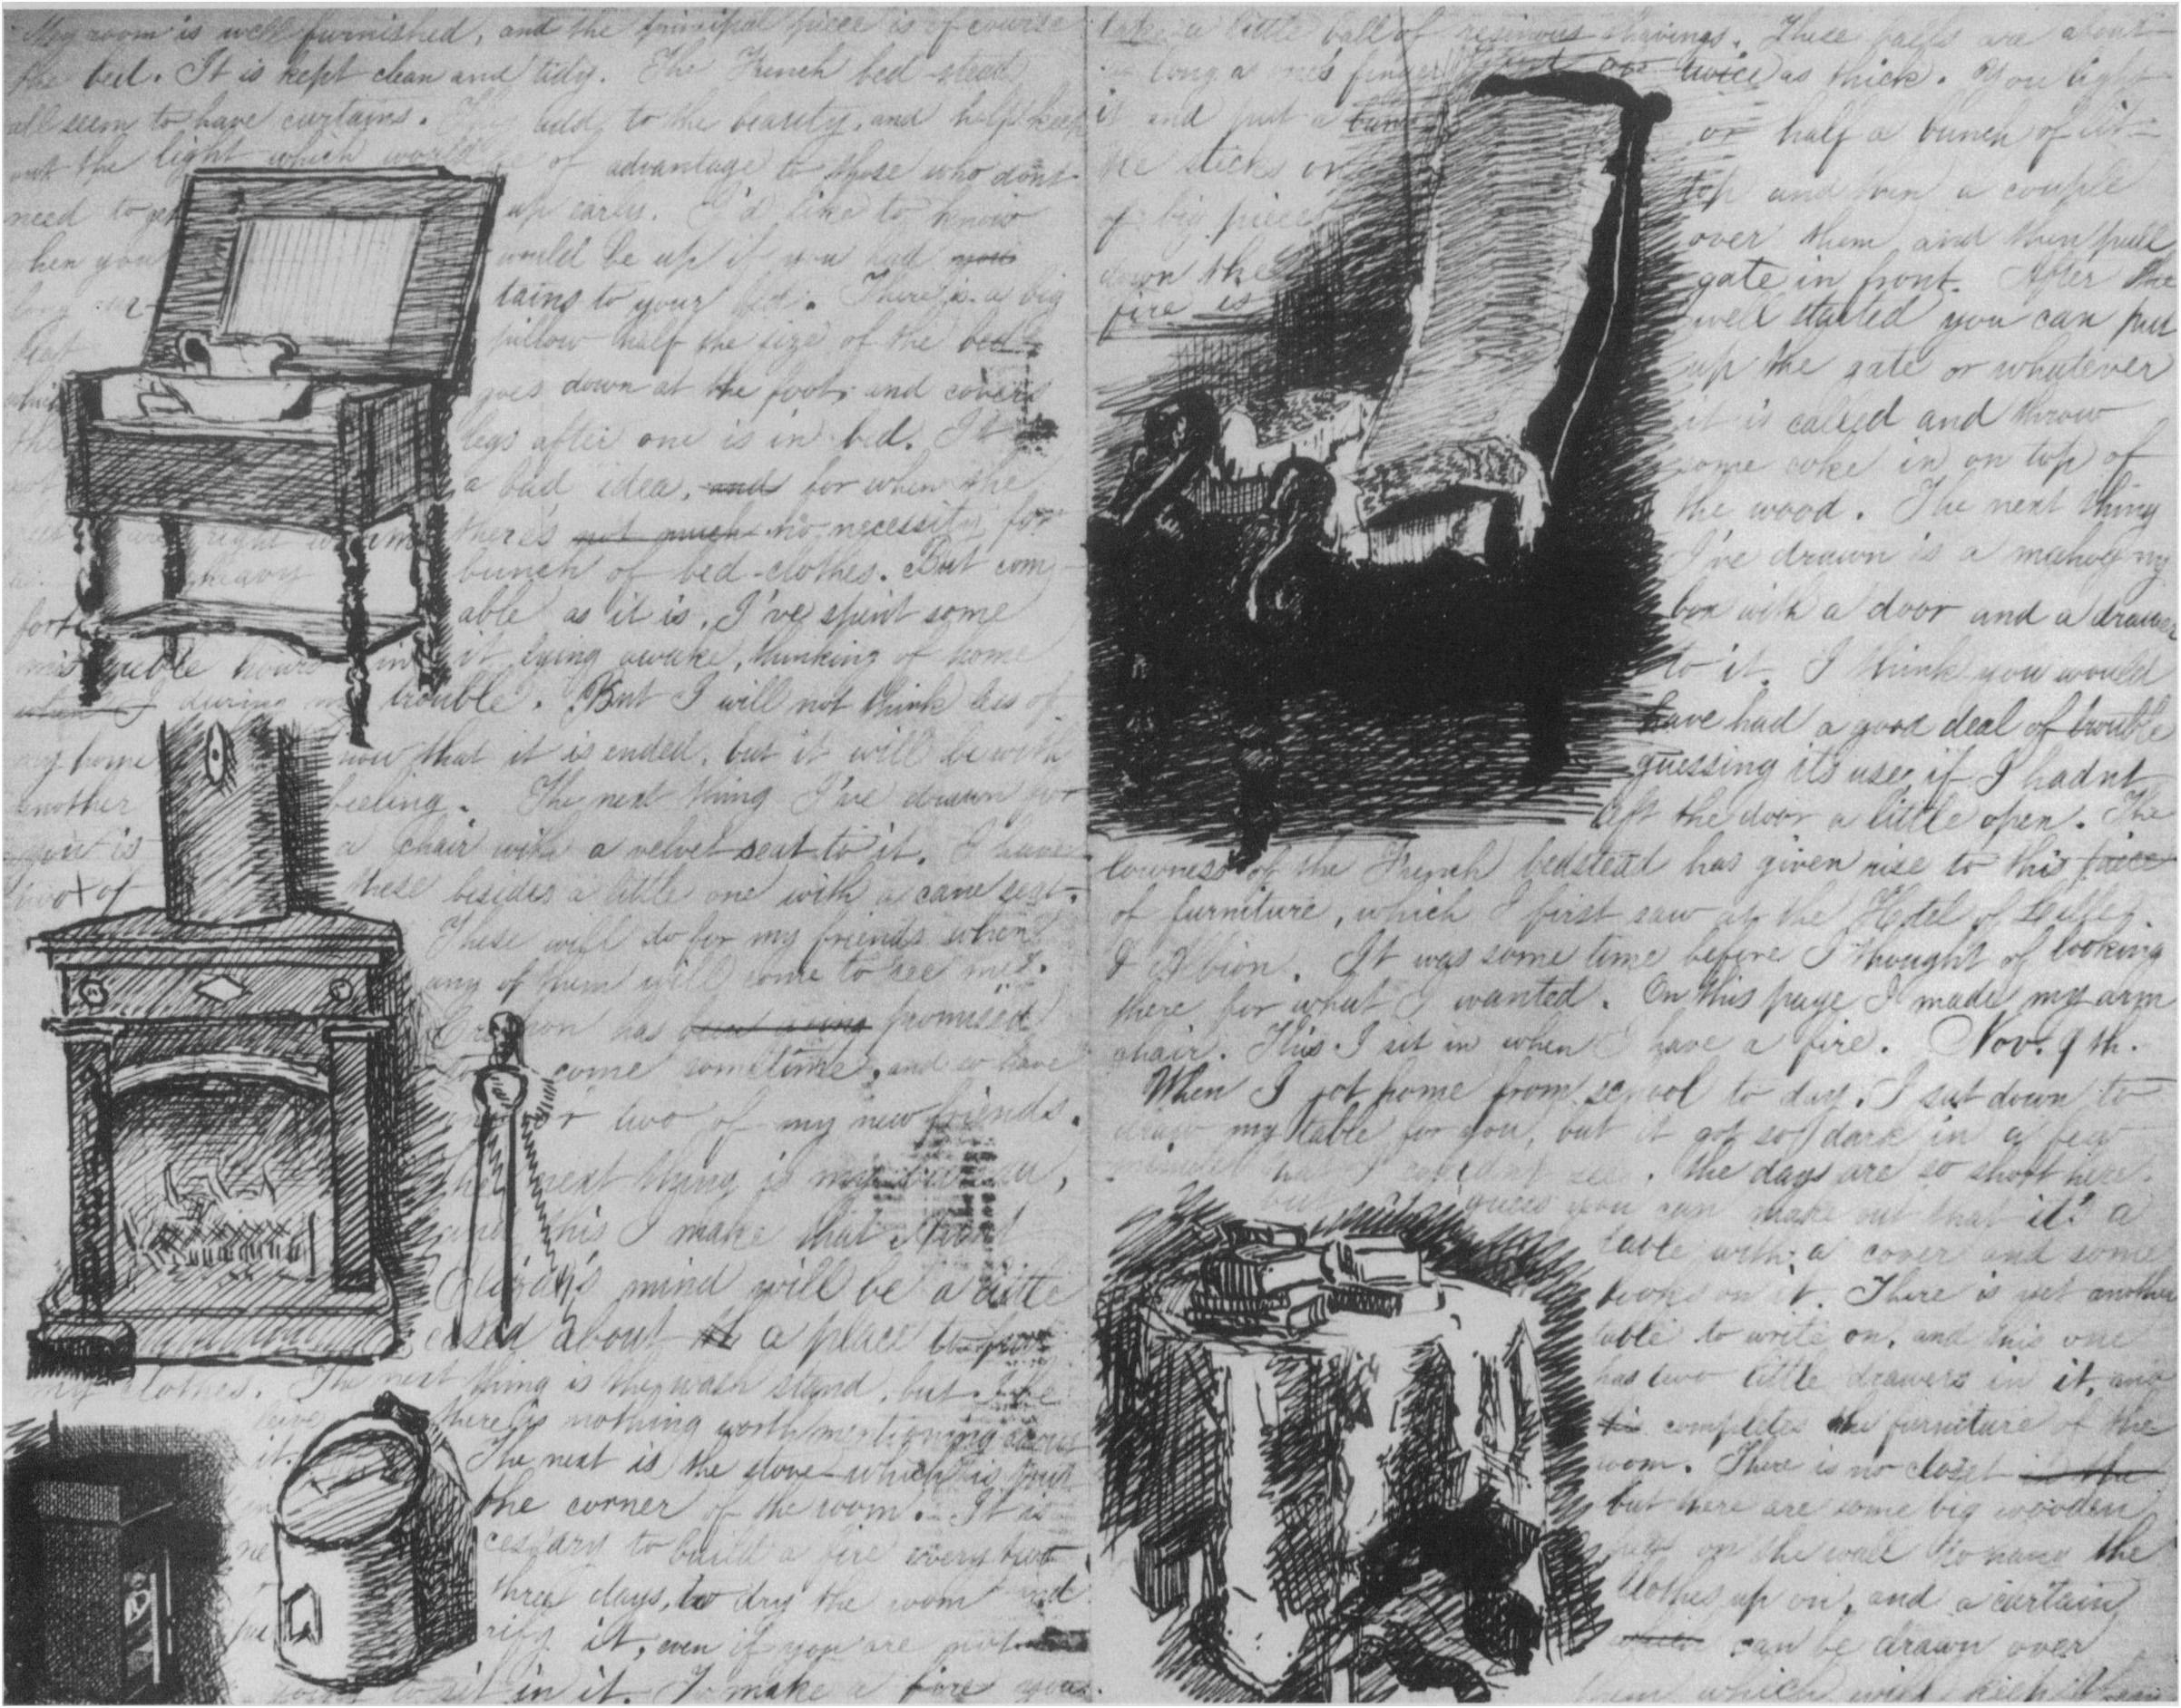 My room is well furnished, and the principal piece is of course
the bed. It is kept clean and tidy. The French bed-stead
all seem to have curtains. They add to the beauty, and help keep
out the light which would be of advantage to those who dont
need to get up early. I'd like to know
when you would be up if you had your
long cur- tains to your bed. There is a big
pillow half the size of the bed
which goes down at the foot and covers
the legs after one is in bed. It
not a bad idea, and for when the
feet are right warm there's not much no necessity for
a heavy bunch of bed-clothes. But com-
fort able as it is, I've spent some
miserable hours in it lying awake, thinking of home
when I during my trouble. But I will not think less of
my home now that it is ended, but it will be with
another feeling. The next thing I've drawn for
you is a chair with a velvet seat to it. I have
two of these besides a little one with a cane seat.
These will do for my friends when
any of them will come to see me.
has promised
to come sometime, and so have
one or two of my new friends.
The next thing is my
and this I make that
mind will be a little
eased about a place to put
my clothes. The next thing is the wash stand, but
there is nothing worth mentioning about
it. The next is the stove which is
the corner of the room. It is
ne cessary to build a fire every two
or three days, to dry the room and
pu rify it, even if you are not
going to sit in it. To make a fire you
take a little ball of resinous shavings. These balls are about
as long a one's finger and twice as thick. You light
it and put a bunc or half a bunch of lit-
tle sticks on top and then a couple
of big pieces over them and then pull
down the gate in front. After the
fire is well started you can pull
up the gate or whatever
it is called and throw
some coke in on top of
the wood. The next thing
I've drawn is a mahogny
box with a door and a drawer
to it. I think you would
have had a good deal of trouble
guessing its use, if I hadnt
left the door a little open. The
lowness of the French bedstead has given rise to this piece
of furniture, which I first saw at the Hotel of Lille
& Albion. It was some time before I thought of looking
there for what I wanted. On this page I made my arm
chair. This I sit in when I have a fire. Nov. 9th.
When I got home from school to day, I sat down to
draw my table for you, but it got so dark in a few
minutes that I couldnt see. The days are so short here.
but I guess you can make out that it's a
table with a cover and some
books on it. There is yet another
table to write on, and this one
has two little drawers in it, and
completes the furniture of the
room. There is no closet in the
but there are some big wooden
pegs on the wall to hang the
clothes up on, and a curtain
which can be drawn over
them which will keep